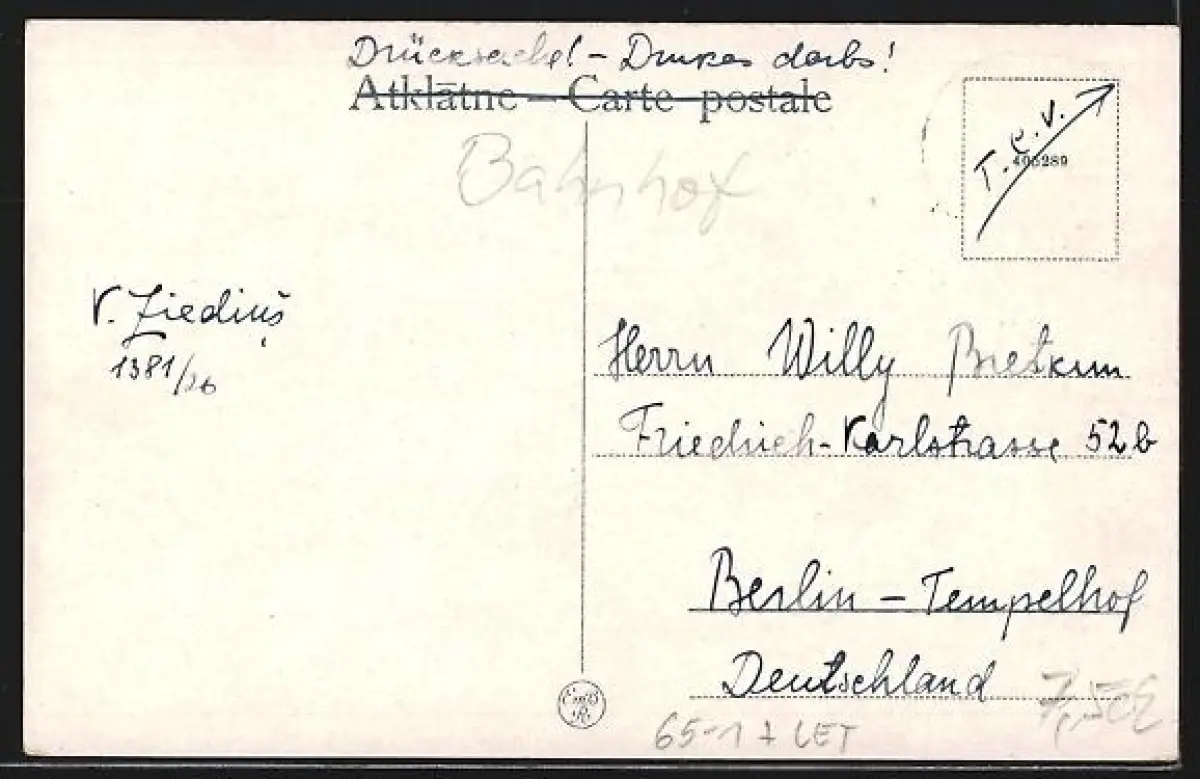 Drücksache! - Drukas darbs!
Atklātne — Carte postale
T. C. V.
405289
Bahnhof
V. Ziediņš
1381/26
Herrn Willy Bietkum
Friedrich-Karlstrasse 52b
Berlin - Tempelhof
Deutschland
7,50€
65-1 7 LET